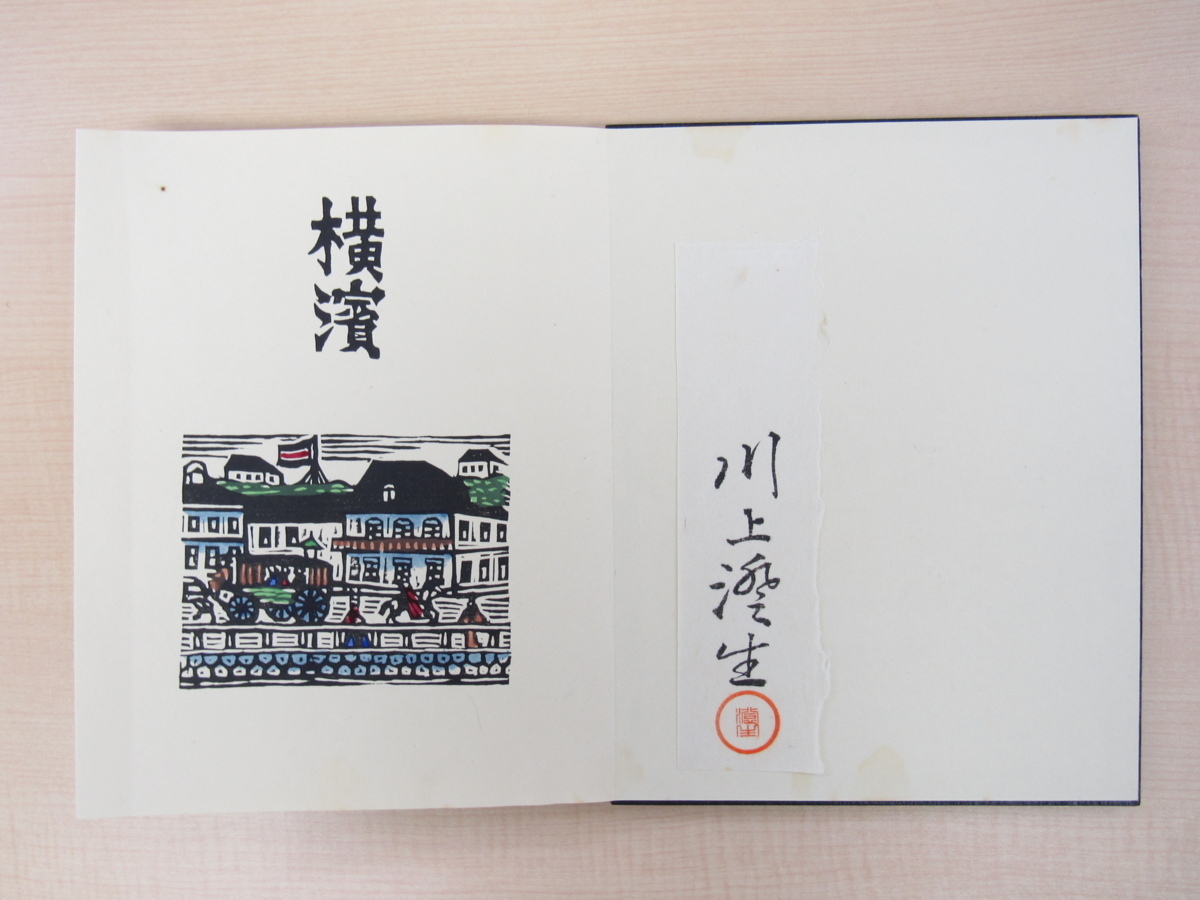 横濱
川上澄生
澄生